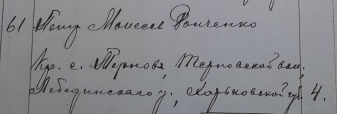 61 Петр Моисеев Донченко
Кр. с. Тернов, Терновской вол.
Лебединского у, Харьковской губ. 4.